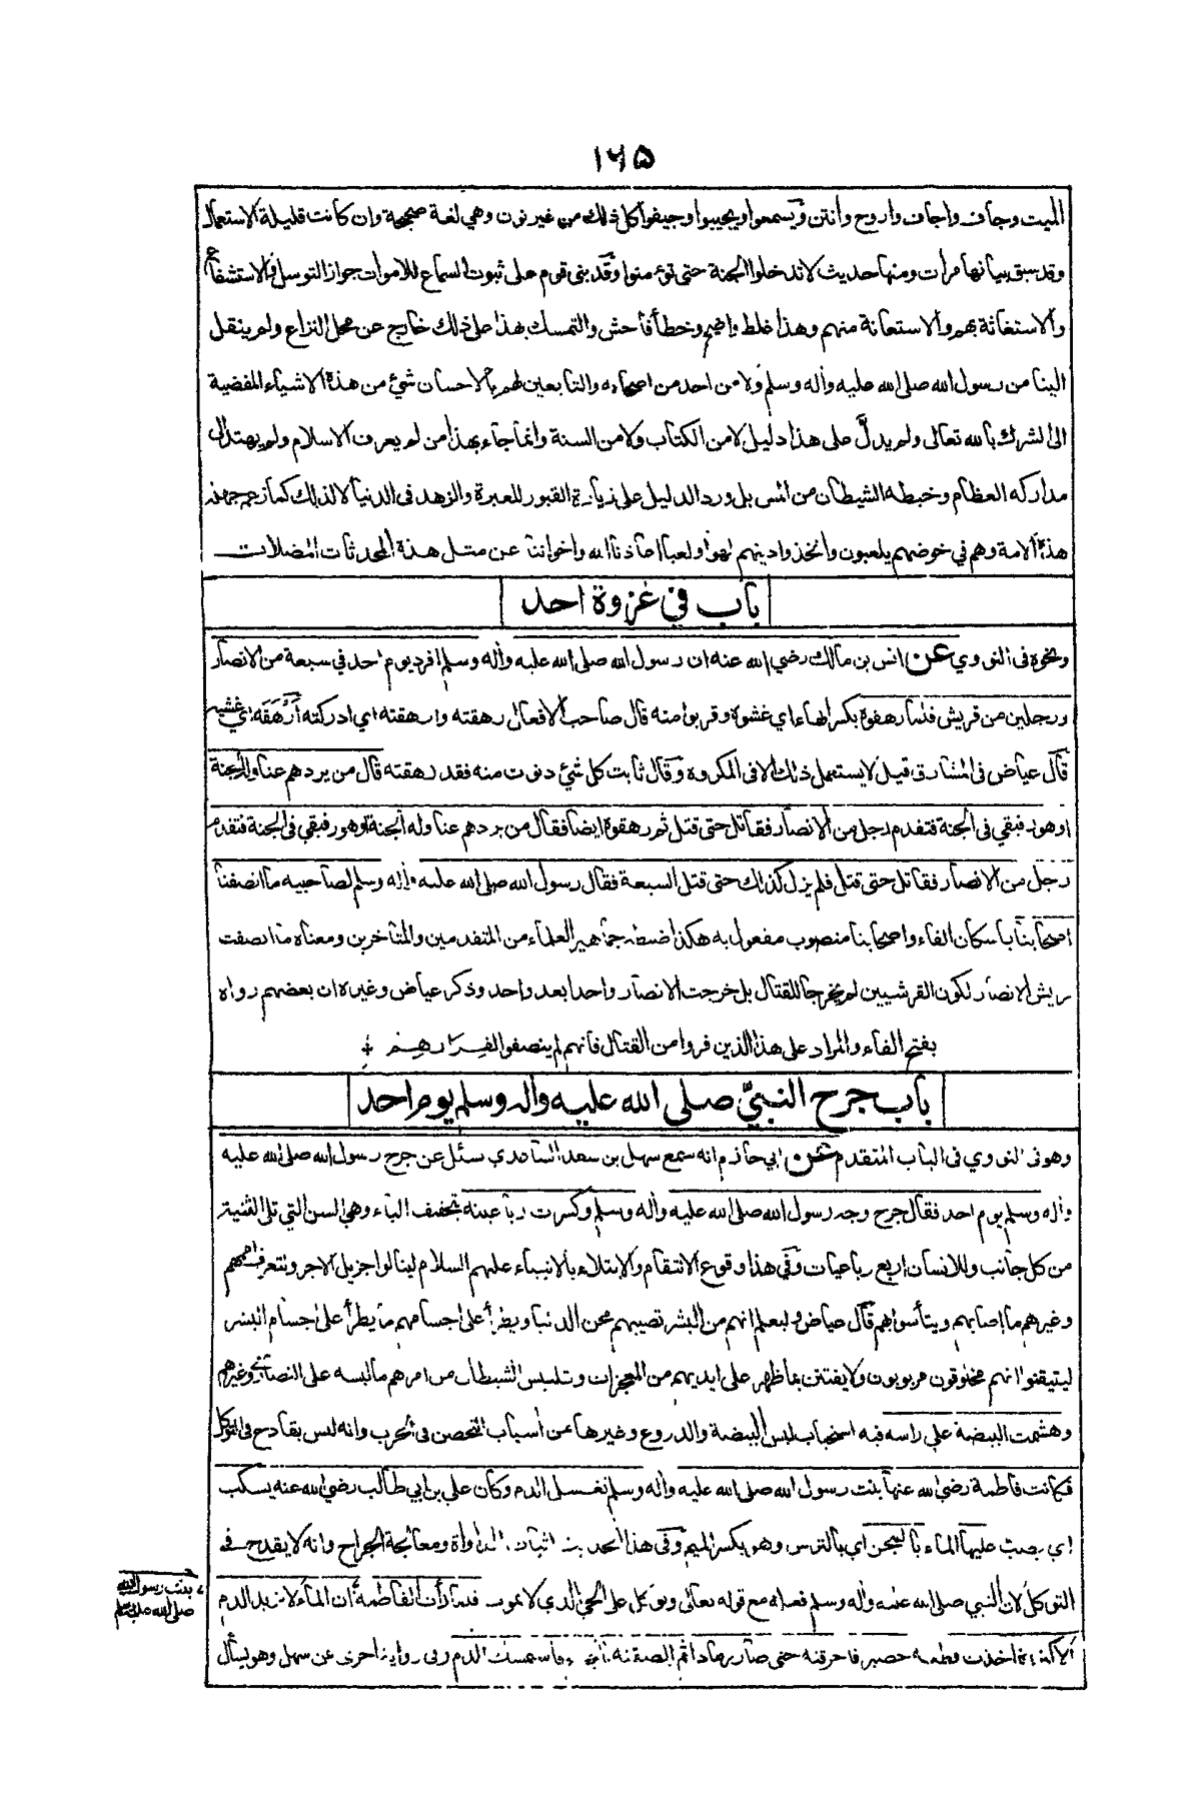 ١٦٥
الميت وجاف واجاف واروح وانتن ويسمعوا ويجيبوا وجيفوا كل ذلك من غير نون وهي لغة صحيحة وان كانت قليلة الاستعمال
وقد سبق بيانها مرات ومنها حديث لا تدخلوا الجنة حتى تؤمنوا وقد بنى قوم على ثبوت السماع للاموات جواز التوسل والاستشفاع
والاستغاثة بهم والاستعانة منهم وهذا غلط واضح وخطأ فاحش والتمسك بهذا على ذلك خارج عن محل النزاع ولم ينقل
الينا من رسول الله صلى الله عليه وأله وسلم ولا من احد من اصحابه والتابعين لهم بالاحسان شئ من هذه الاشياء المفضية
الى الشرك بالله تعالى ولم يدلّ على هذا دليل لا من الكتاب ولا من السنة وانما جاء بهذا من لم يعرف الاسلام ولم يهتد الى
مداركه العظام وخبطه الشيطان من المس بل ورد الدليل على زيارة القبور للعبرة والزهد في الدنيا لا لذلك كما زعم جم من
هذه الامة وهم في خوضهم يلعبون واتخذوا دينهم لهوا ولعبا اعاذنا الله واخواننا عن مثل هذه المحدثات المضلات
باب في غزوة احد
ونحوه في النووي عن انس بن مالك رضي الله عنه ان رسول الله صلى الله عليه وأله وسلم افرد يوم احد في سبعة من الانصار
ورجلين من قريش فلما رهقوه بكسر الهاء اي غشوه وقربوا منه قال صاحب الافعال رهقته وارهقته اي ادركته أرهقه اي غشيه
قال عياض في المشارق قيل لا يستعمل ذلك الا في المكروه وقال ثابت كل شئ دنوت منه فقد رهقته قال من يردهم عنا وله الجنة
او هو رفيقي في الجنة فتقدم رجل من الانصار فقاتل حتى قتل ثم رهقوه ايضا فقال من يردهم عنا وله الجنة او هو رفيقي في الجنة فتقدم
رجل من الانصار فقاتل حتى قتل فلم يزل كذلك حتى قتل السبعة فقال رسول الله صلى الله عليه وأله وسلم لصاحبيه ما انصفنا
اصحابنا باسكان الفاء واصحابنا منصوب مفعول به هكذا ضبطه جماهير العلماء من المتقدمين والمتأخرين ومعناه ما انصفت
قريش الانصار لكون القرشيين لم يخرجا للقتال بل خرجت الانصار واحدا بعد واحد وذكر عياض وغيره ان بعضهم رواه
بفتح الفاء والمراد على هذا الذين فروا من القتال فانهم لم ينصفوا الفرارهم
باب جرح النبيّ صلى الله عليه وأله وسلم يوم احد
وهو في النووي في الباب المتقدم عن ابي حازم انه سمع سهل بن سعد الساعدي سئل عن جرح رسول الله صلى الله عليه
وأله وسلم يوم احد فقال جرح وجه رسول الله صلى الله عليه وأله وسلم وكسرت رباعيته بتخفيف الياء وهي السن التي تلي الثنية
من كل جانب وللانسان اربع رباعيات وفي هذا وقوع الانتقام والابتلاء بالانبياء عليهم السلام لينالوا جزيل الاجر ولتعرف اممهم
وغيرهم ما اصابهم ويتأسوا بهم قال عياض وليعلم انهم من البشر تصيبهم محن الدنيا ويطرأ على اجسامهم ما يطرأ على اجسام البشر
ليتيقنوا انهم مخلوقون مربوبون ولا يفتتن بما ظهر على ايديهم من المعجزات وتلبيس الشيطان من امرهم ما لبسه على النصارى وغيرهم
وهشمت البيضة على راسه فيه استحباب لبس البيضة والدروع وغيرها من أسباب التحصن في الحرب وانه ليس بقادح في التوكل
فكانت فاطمة رضي الله عنها بنت رسول الله صلى الله عليه وأله وسلم تغسل الدم وكان علي بن ابي طالب رضي الله عنه يسكب
اي يصب عليها الماء بالمجن اي بالترس وهو بكسر الميم وفي هذا الحديث اثبات المداواة ومعالجة الجراح وانه لا يقدح في
التوكل لان النبي صلى الله عليه وأله وسلم فعله مع قوله تعالى وتوكل على الحي الذي لا يموت فلما رأت فاطمة أن الماء لا يزيد الدم
الا كثرة اخذت قطعة حصير فاحرقته حتى صار رمادا ثم الصقته فاستمسك الدم وفي رواية اخرى عن سهل وهو يسأل
بنت رسول الله
صلى الله عليه وسلم